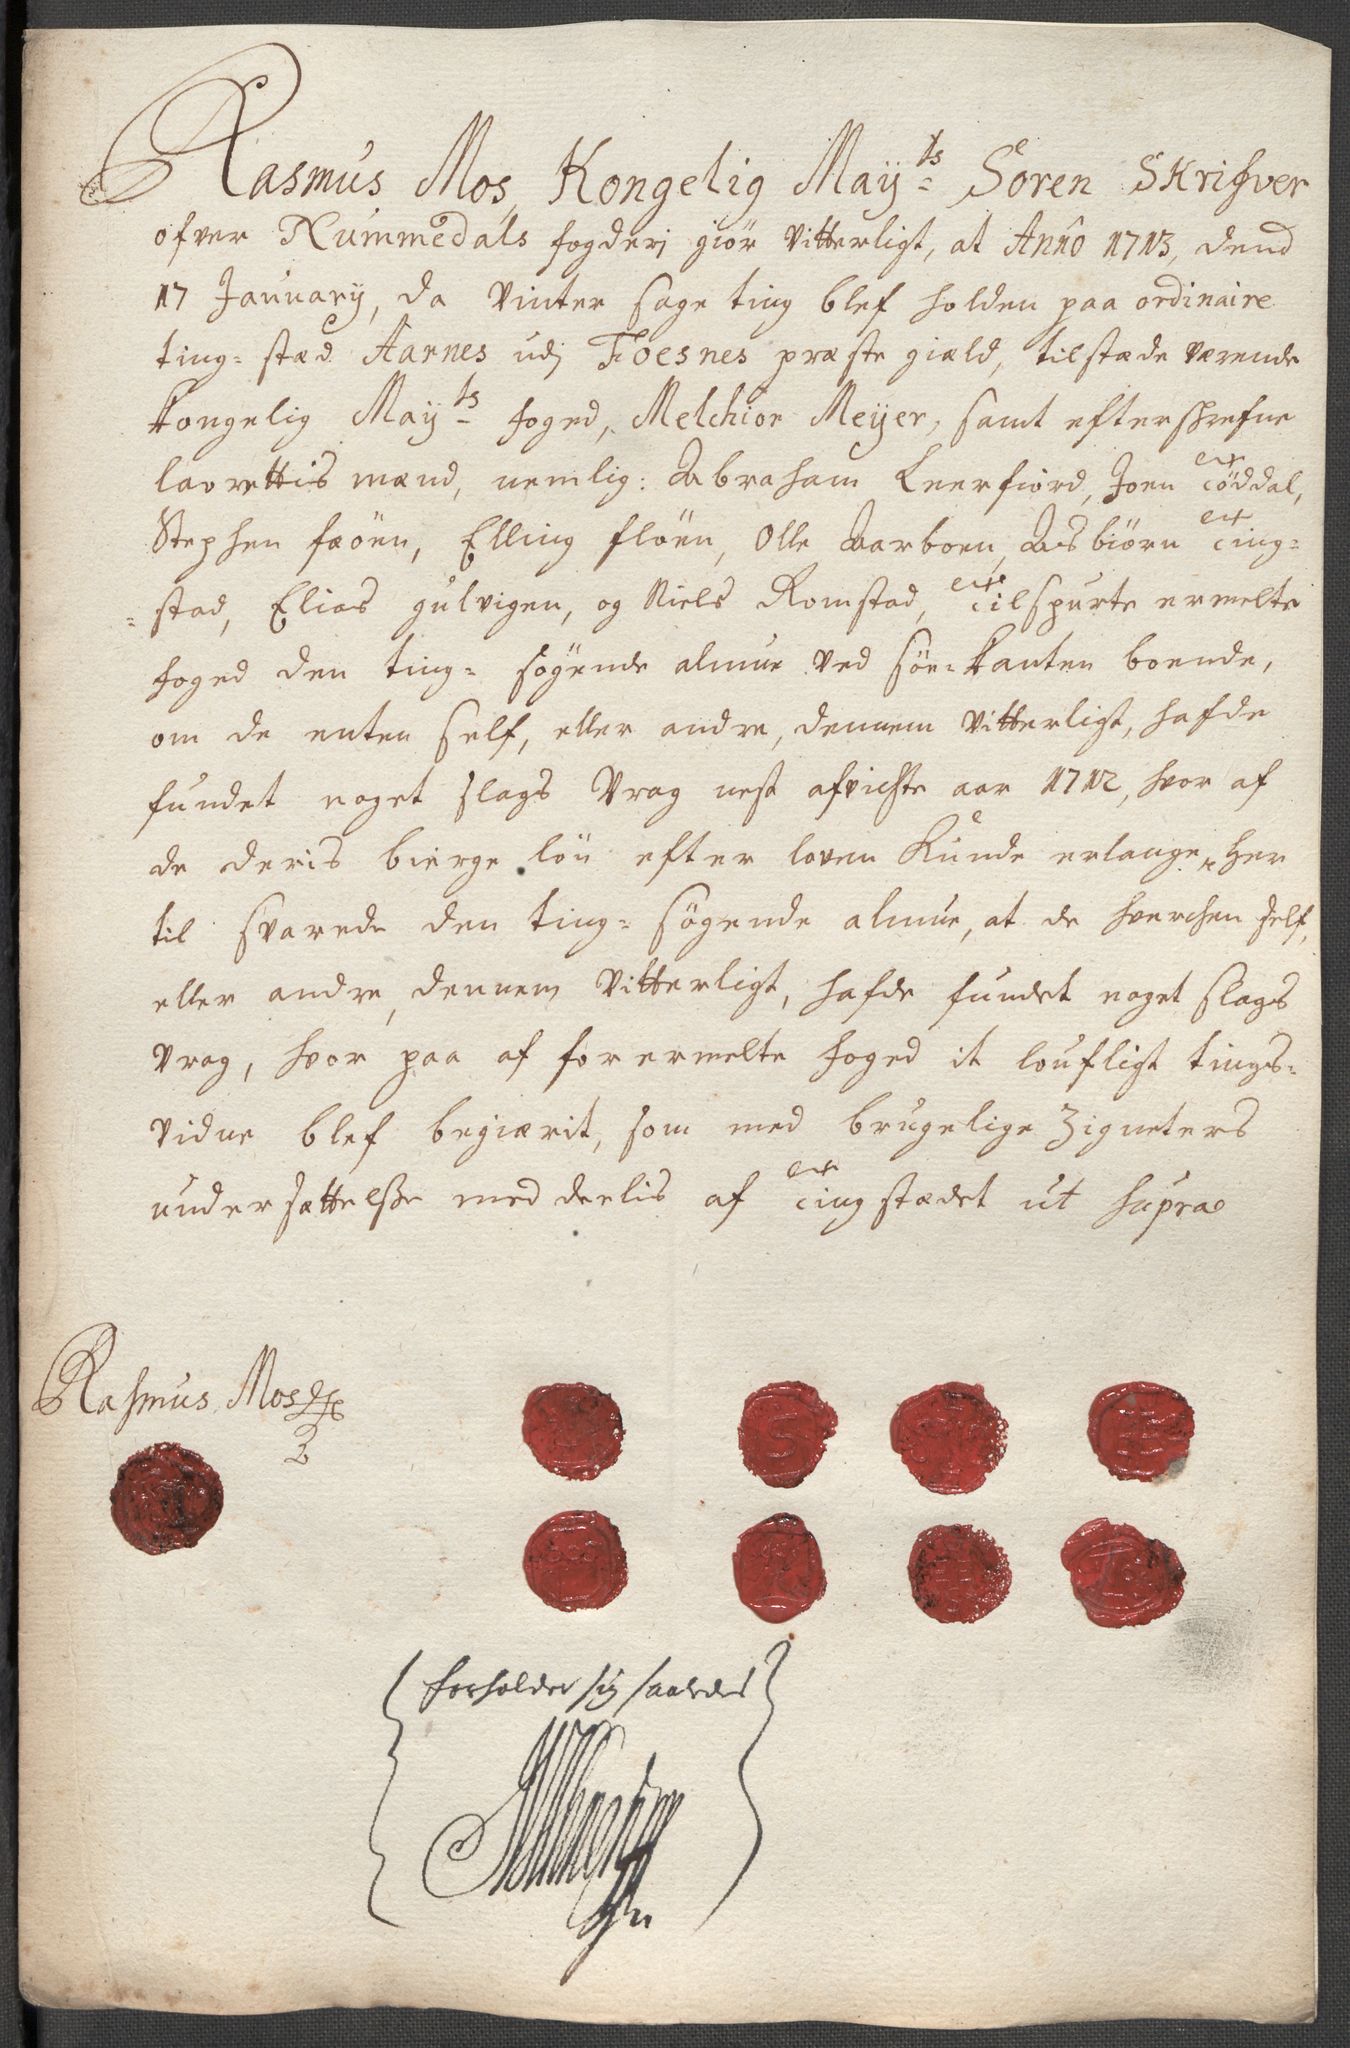 Rasmus Mos, Kongelig May:ts Soren Skrifver
ofver Nummedals fogderj giör vitterligt, at Anno 1713, dend
17 Januarij, da vinter sage ting blef holden paa ordinaire
ting= stæd Aarnes udj Foesnes præste giæld, tilstæde værende
Kongelig May:ts foged, Melchior Meyer, samt efterskrefne
lavrettis mænd, nemlig: Abraham Leerfiord, Joen Töddal,
Stephen faöen, Elling flöen, Olle Aarboen, Asbiörn Ting=
=stad, Elias gulvigen, og Niels Romstad, Tilspurte ermelte
foged den ting= sögende almue ved söe=Kanten boende,
om de enten self, eller andre, dennem vitterligt, hafde
fundet noget slags vrag nest afvichte aar 1712, hvor af
de deris bierge lön efter loven Kunde erlange, Her
til svarede den ting= sögende almue, at de hverchen self,
eller andre, dennem vitterligt, hafde fundet noget slags
vrag, hvor paa af for ermelte foged it loufligt tings=
vidne blef begiærit, som med brugelige Zigneters
under sættelsse med deelis af Ting stædet ut supra
Rasmus Mos
S
forholder sig saaledes